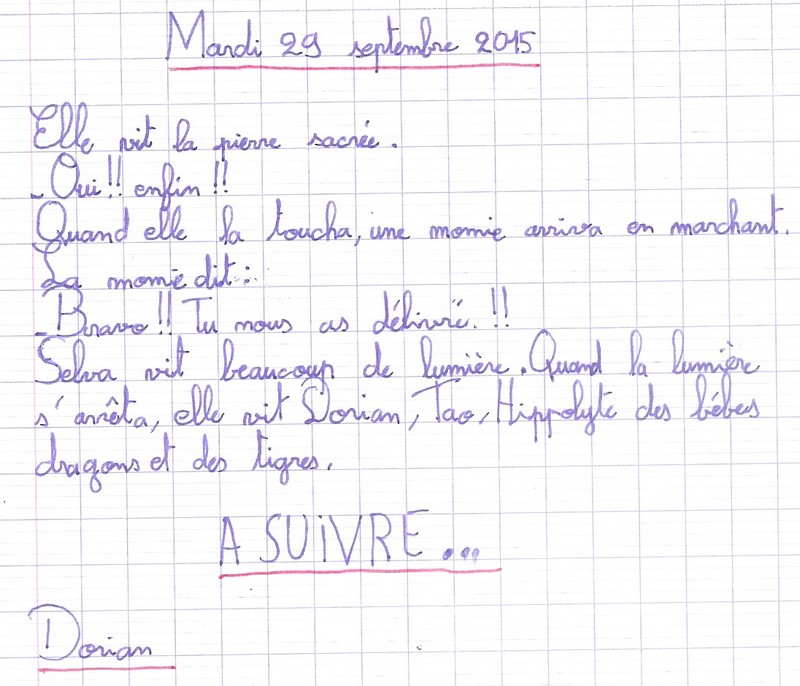 Mardi 29 septembre 2015
Elle vit la pierre sacrée.
_Oui!! enfin!!
Quand elle la toucha, une momie arriva en marchant.
La momie dit:
_Bravo!! Tu nous as délivré.!!
Selva vit beaucoup de lumière. Quand la lumière
s'arrêta, elle vit Dorian, Tao, Hippolyte des bébés
dragons et des tigres.
A SUiVRE...
Dorian